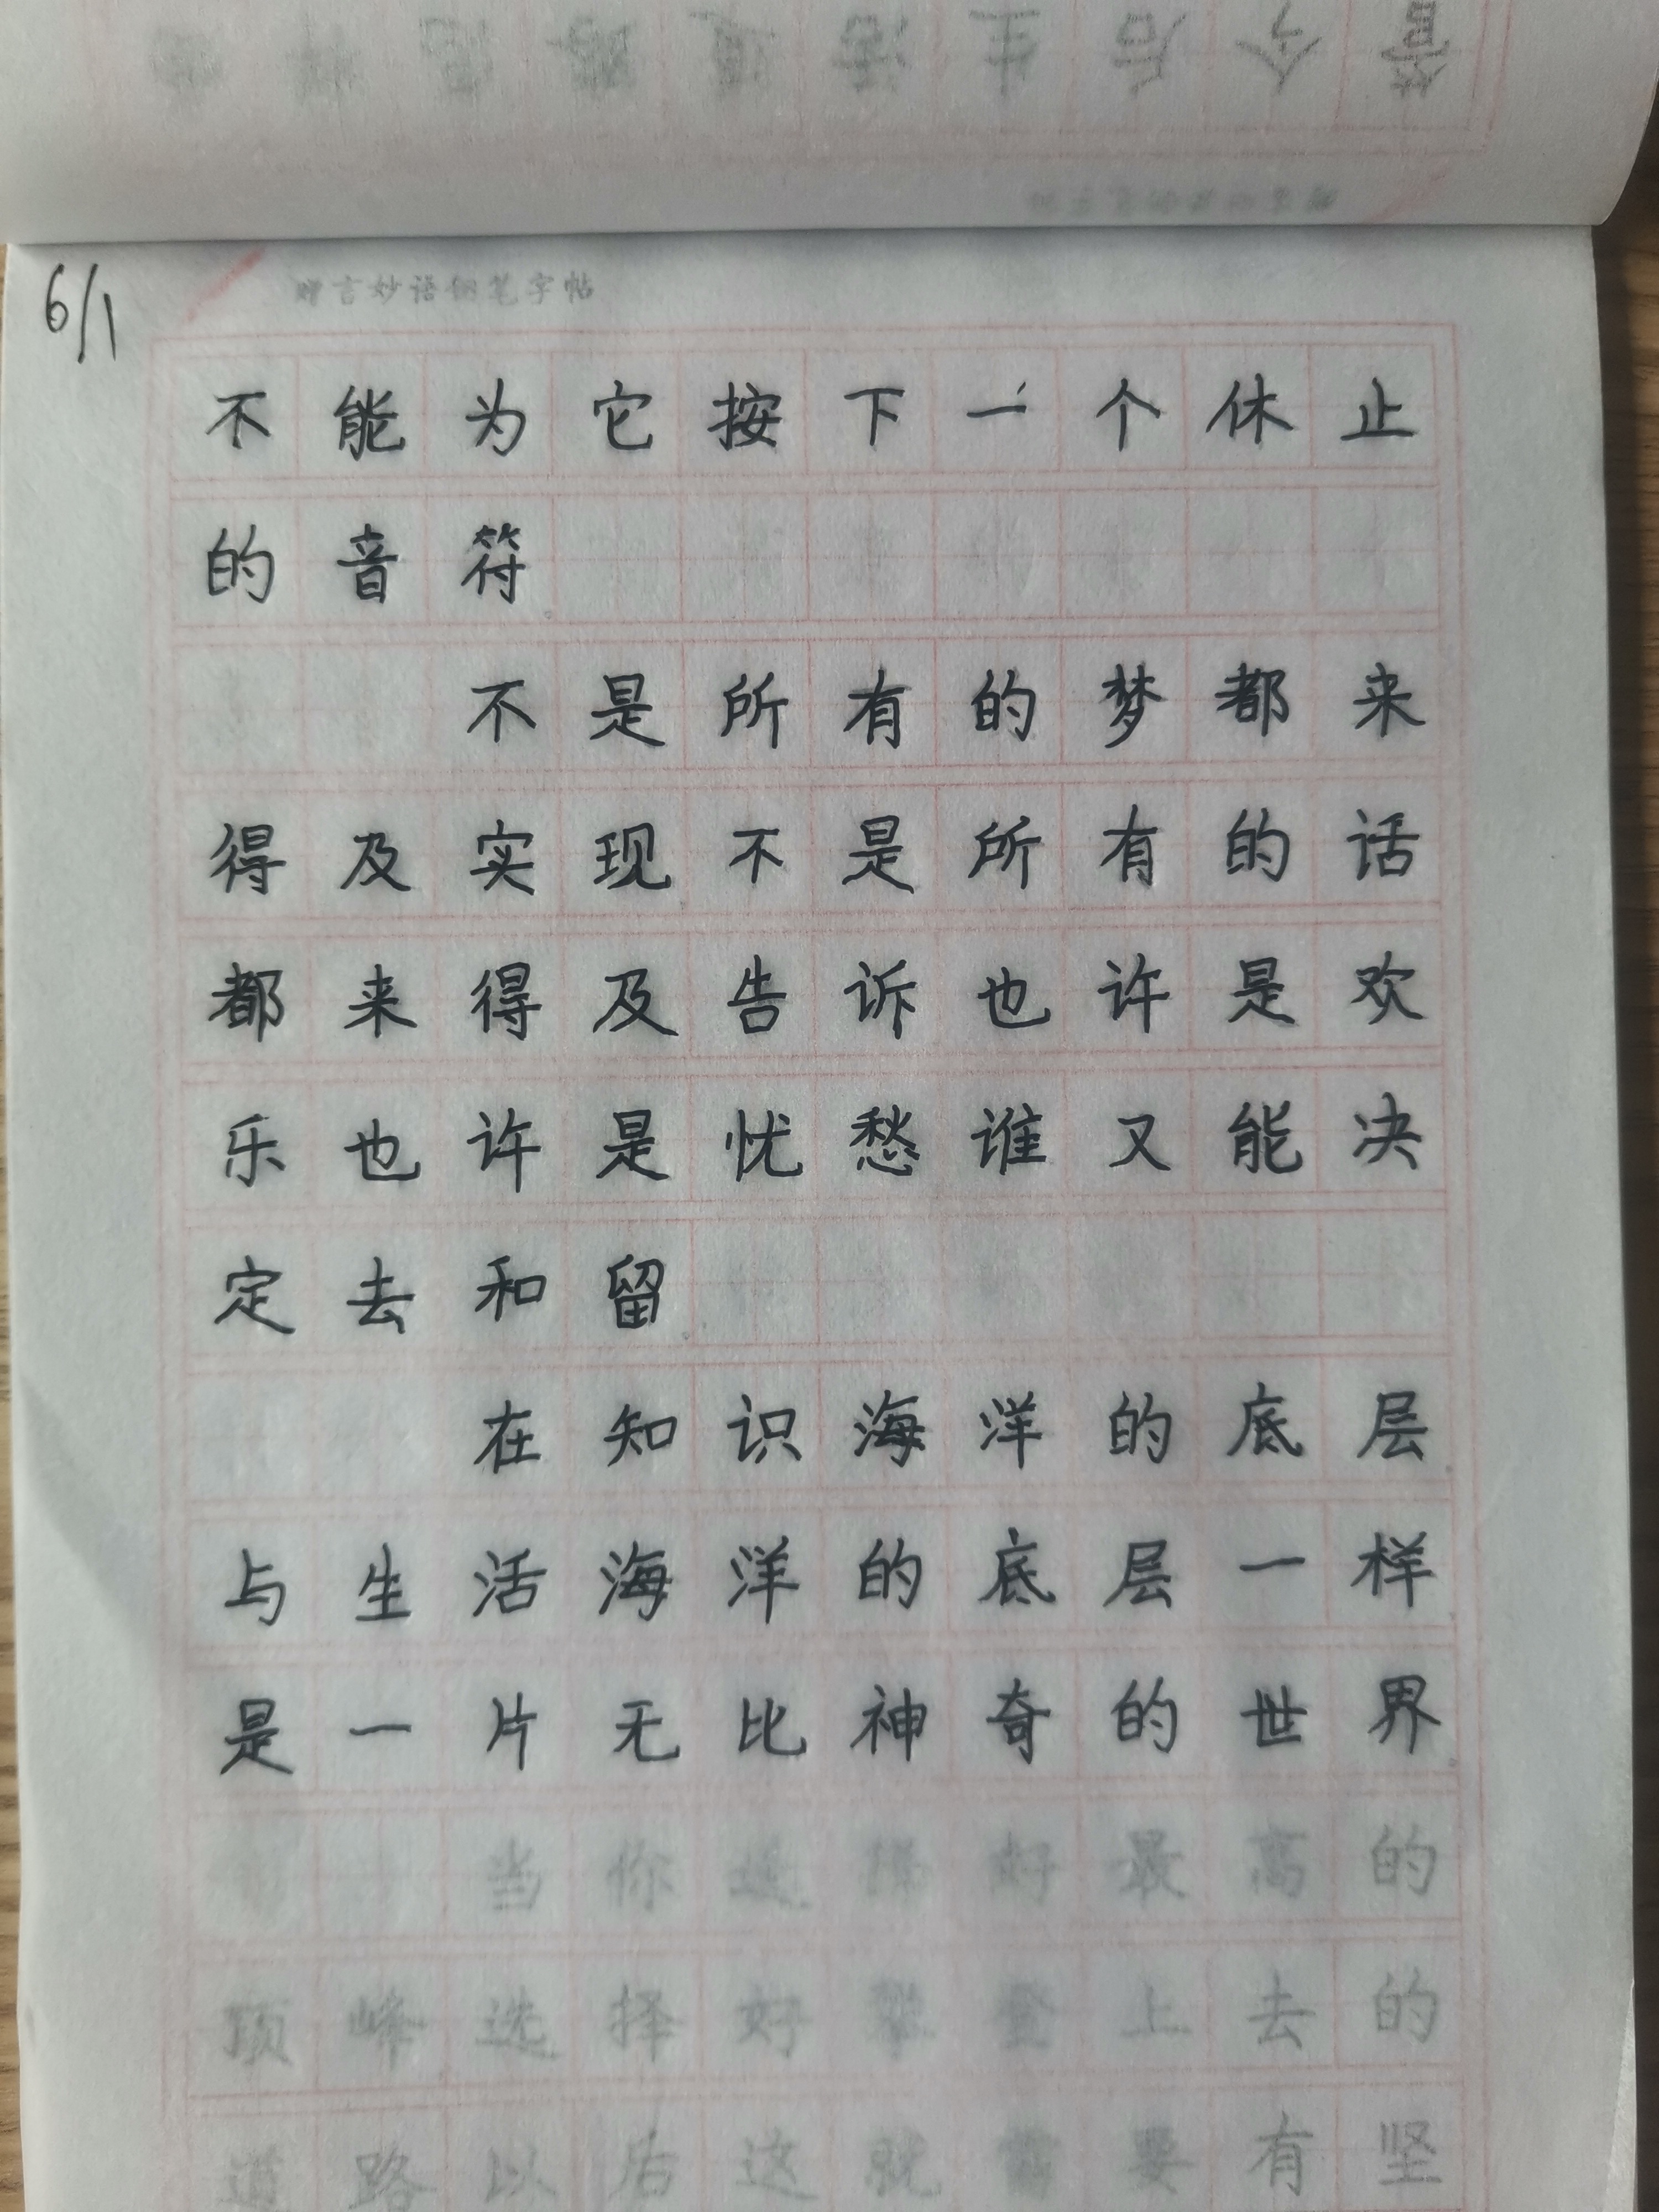 6/1
赠言妙语钢笔字帖
不能为它按下一个休止
的音符
不是所有的梦都来
得及实现不是所有的话
都来得及告诉也许是欢
乐也许是忧愁谁又能决
定去和留
在知识海洋的底层
与生活海洋的底层一样
是一片无比神奇的世界
当你选择好最高的
顶峰选择好攀登上去的
道路以后这就需要有坚